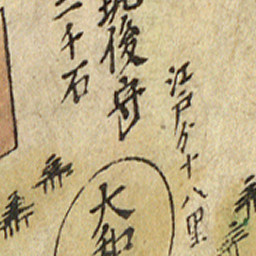 江戸ゟ十八里
筑後守
二千石
大和